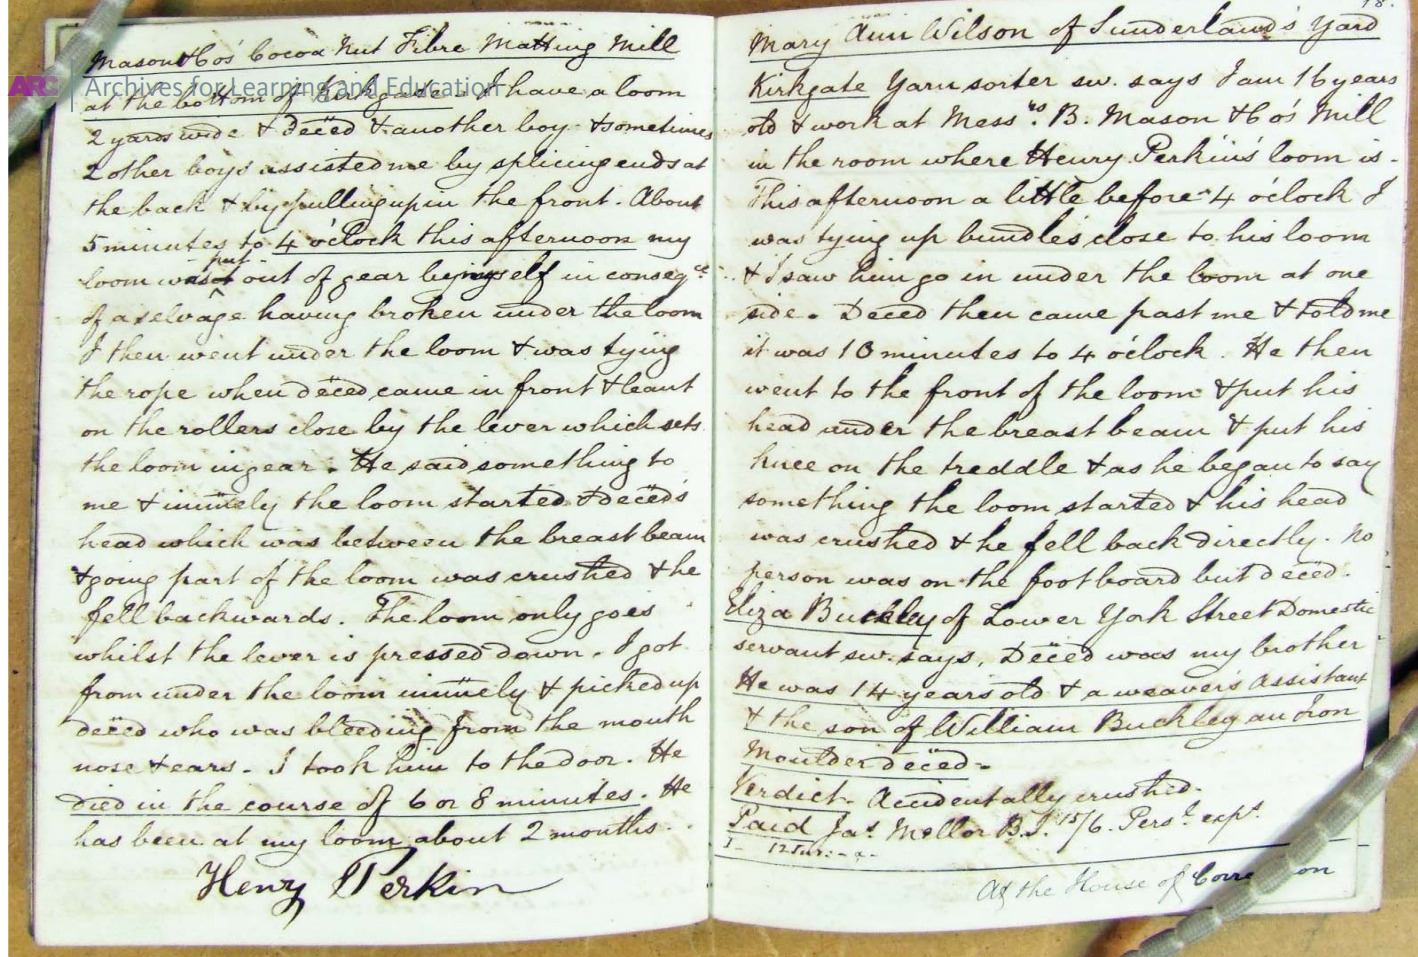 Mason & Co's Cocoa Nut Fibre Matting Mill
ARC Archives for Learning and Education
at the bottom of Kirkgate. I have a loom
2 yards wide & deced & another boy & sometimes
2 other boys assisted me by splicing ends at
the back & by pulling up in the front. About
5 minutes to 4 o'clock this afternoon my
put
loom was out of gear by myself in conseqce
of a selvage having broken under the loom
I then went under the loom & was tying
the rope when deced came in front & leant
on the rollers close by the lever which sets
the loom in gear. He said something to
me & immely the loom started & deced's
head which was between the breast beam
& going part of the loom was crushed & he
fell backwards. The loom only goes
whilst the lever is pressed down. I got
from under the loom immely & picked up
deced who was bleeding from the mouth
nose & ears. I took him to the door. He
died in the course of 6 or 8 minutes. He
has been at my loom about 2 months.
Henry Perkin
18.
Mary Ann Wilson of Sunderland's Yard
Kirkgate Yarn sorter sw. says I am 16 years
old & work at Messrs. B. Mason & Co's Mill
in the room where Henry Perkin's loom is -
This afternoon a little before 4 o'clock I
was tying up bundles close to his loom
& I saw him go in under the loom at one
side. Deced then came past me & told me
it was 10 minutes to 4 o'clock. He then
went to the front of the loom & put his
head under the breast beam & put his
knee on the treddle & as he began to say
something the loom started & his head
was crushed & he fell back directly. No
person was on the footboard but deced.
Eliza Buckley of Lower York Street Domestic
servant sw. says, Deced was my brother
He was 14 years old & a weaver's assistant
& the son of William Buckley an Iron
Moulder deced -
Verdict - Accidentally crushed -
Paid Jas. Mellor B.S. 15/6. Persl. expt.
At the House of Correction